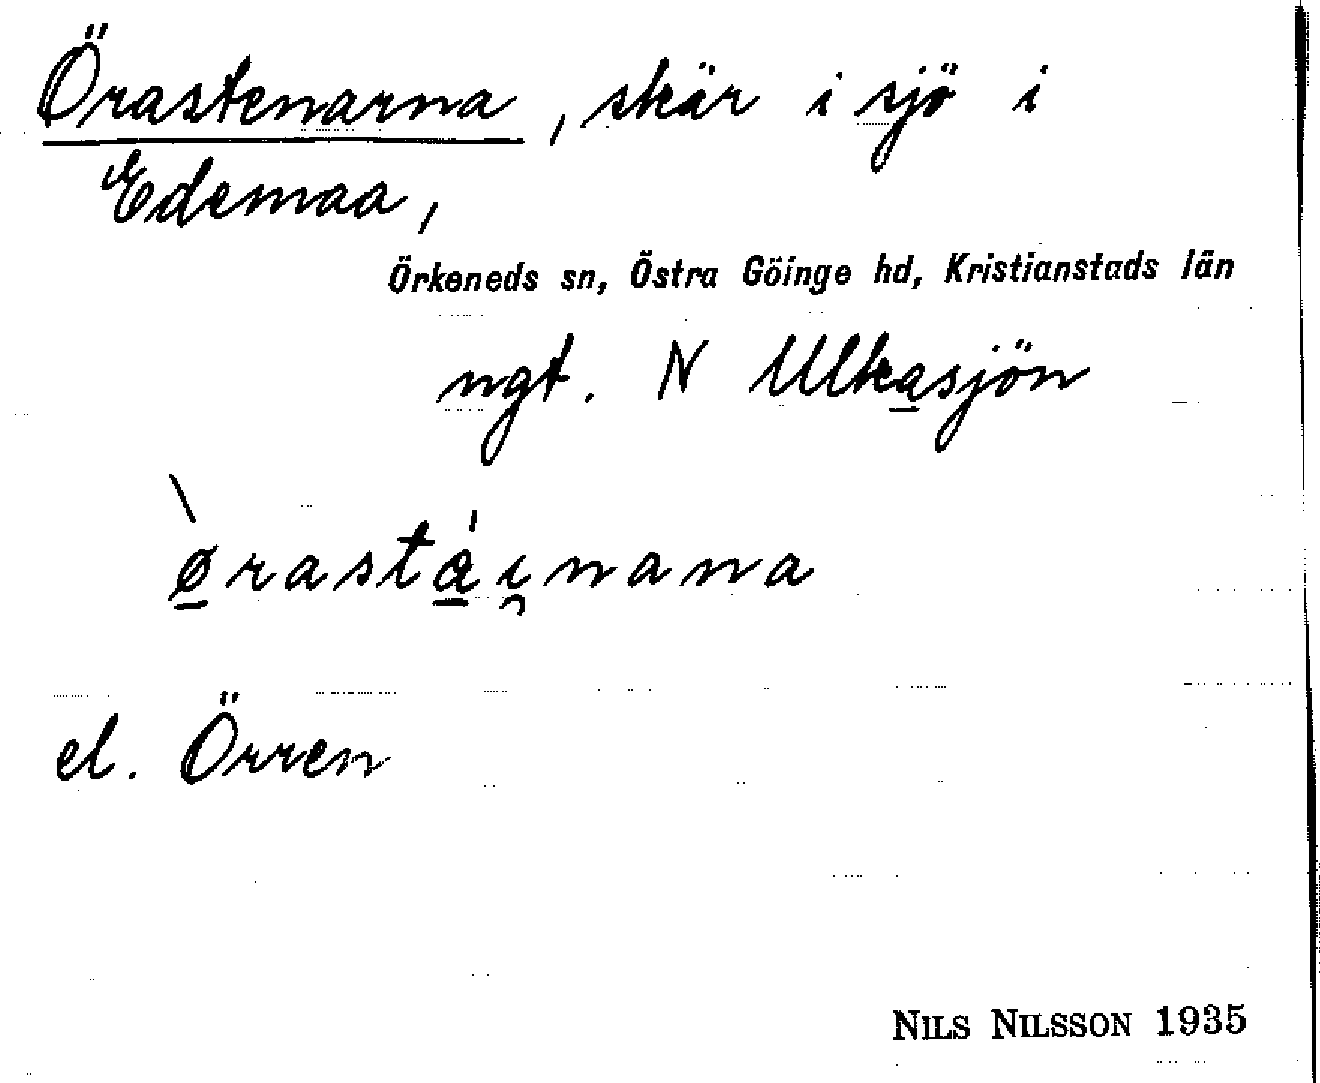 Örastenarna, skär i sjö i
Edemaa,
Örkeneds sn, Östra Göinge hd, Kristianstads län
ngt. N Ulkasjön
ø̱̀rasta̱̍i̯nana
el. Örren
NILS NILSSON 1935